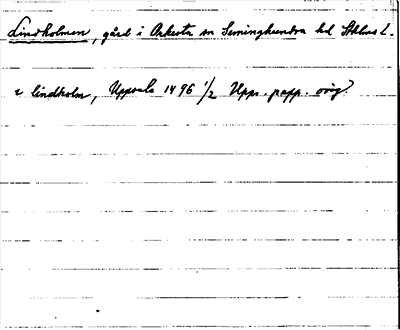 Lindholmen, gård i Orkesta sn Seminghundra hd Sthlms l.
e lindholm, Uppsala 1496 1/2 Upps. papp. orig.